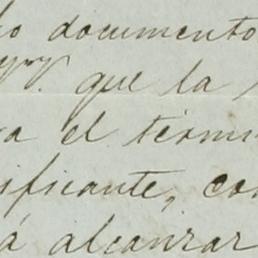 documento
que la
el térmi
ificante, co
á alcanzar